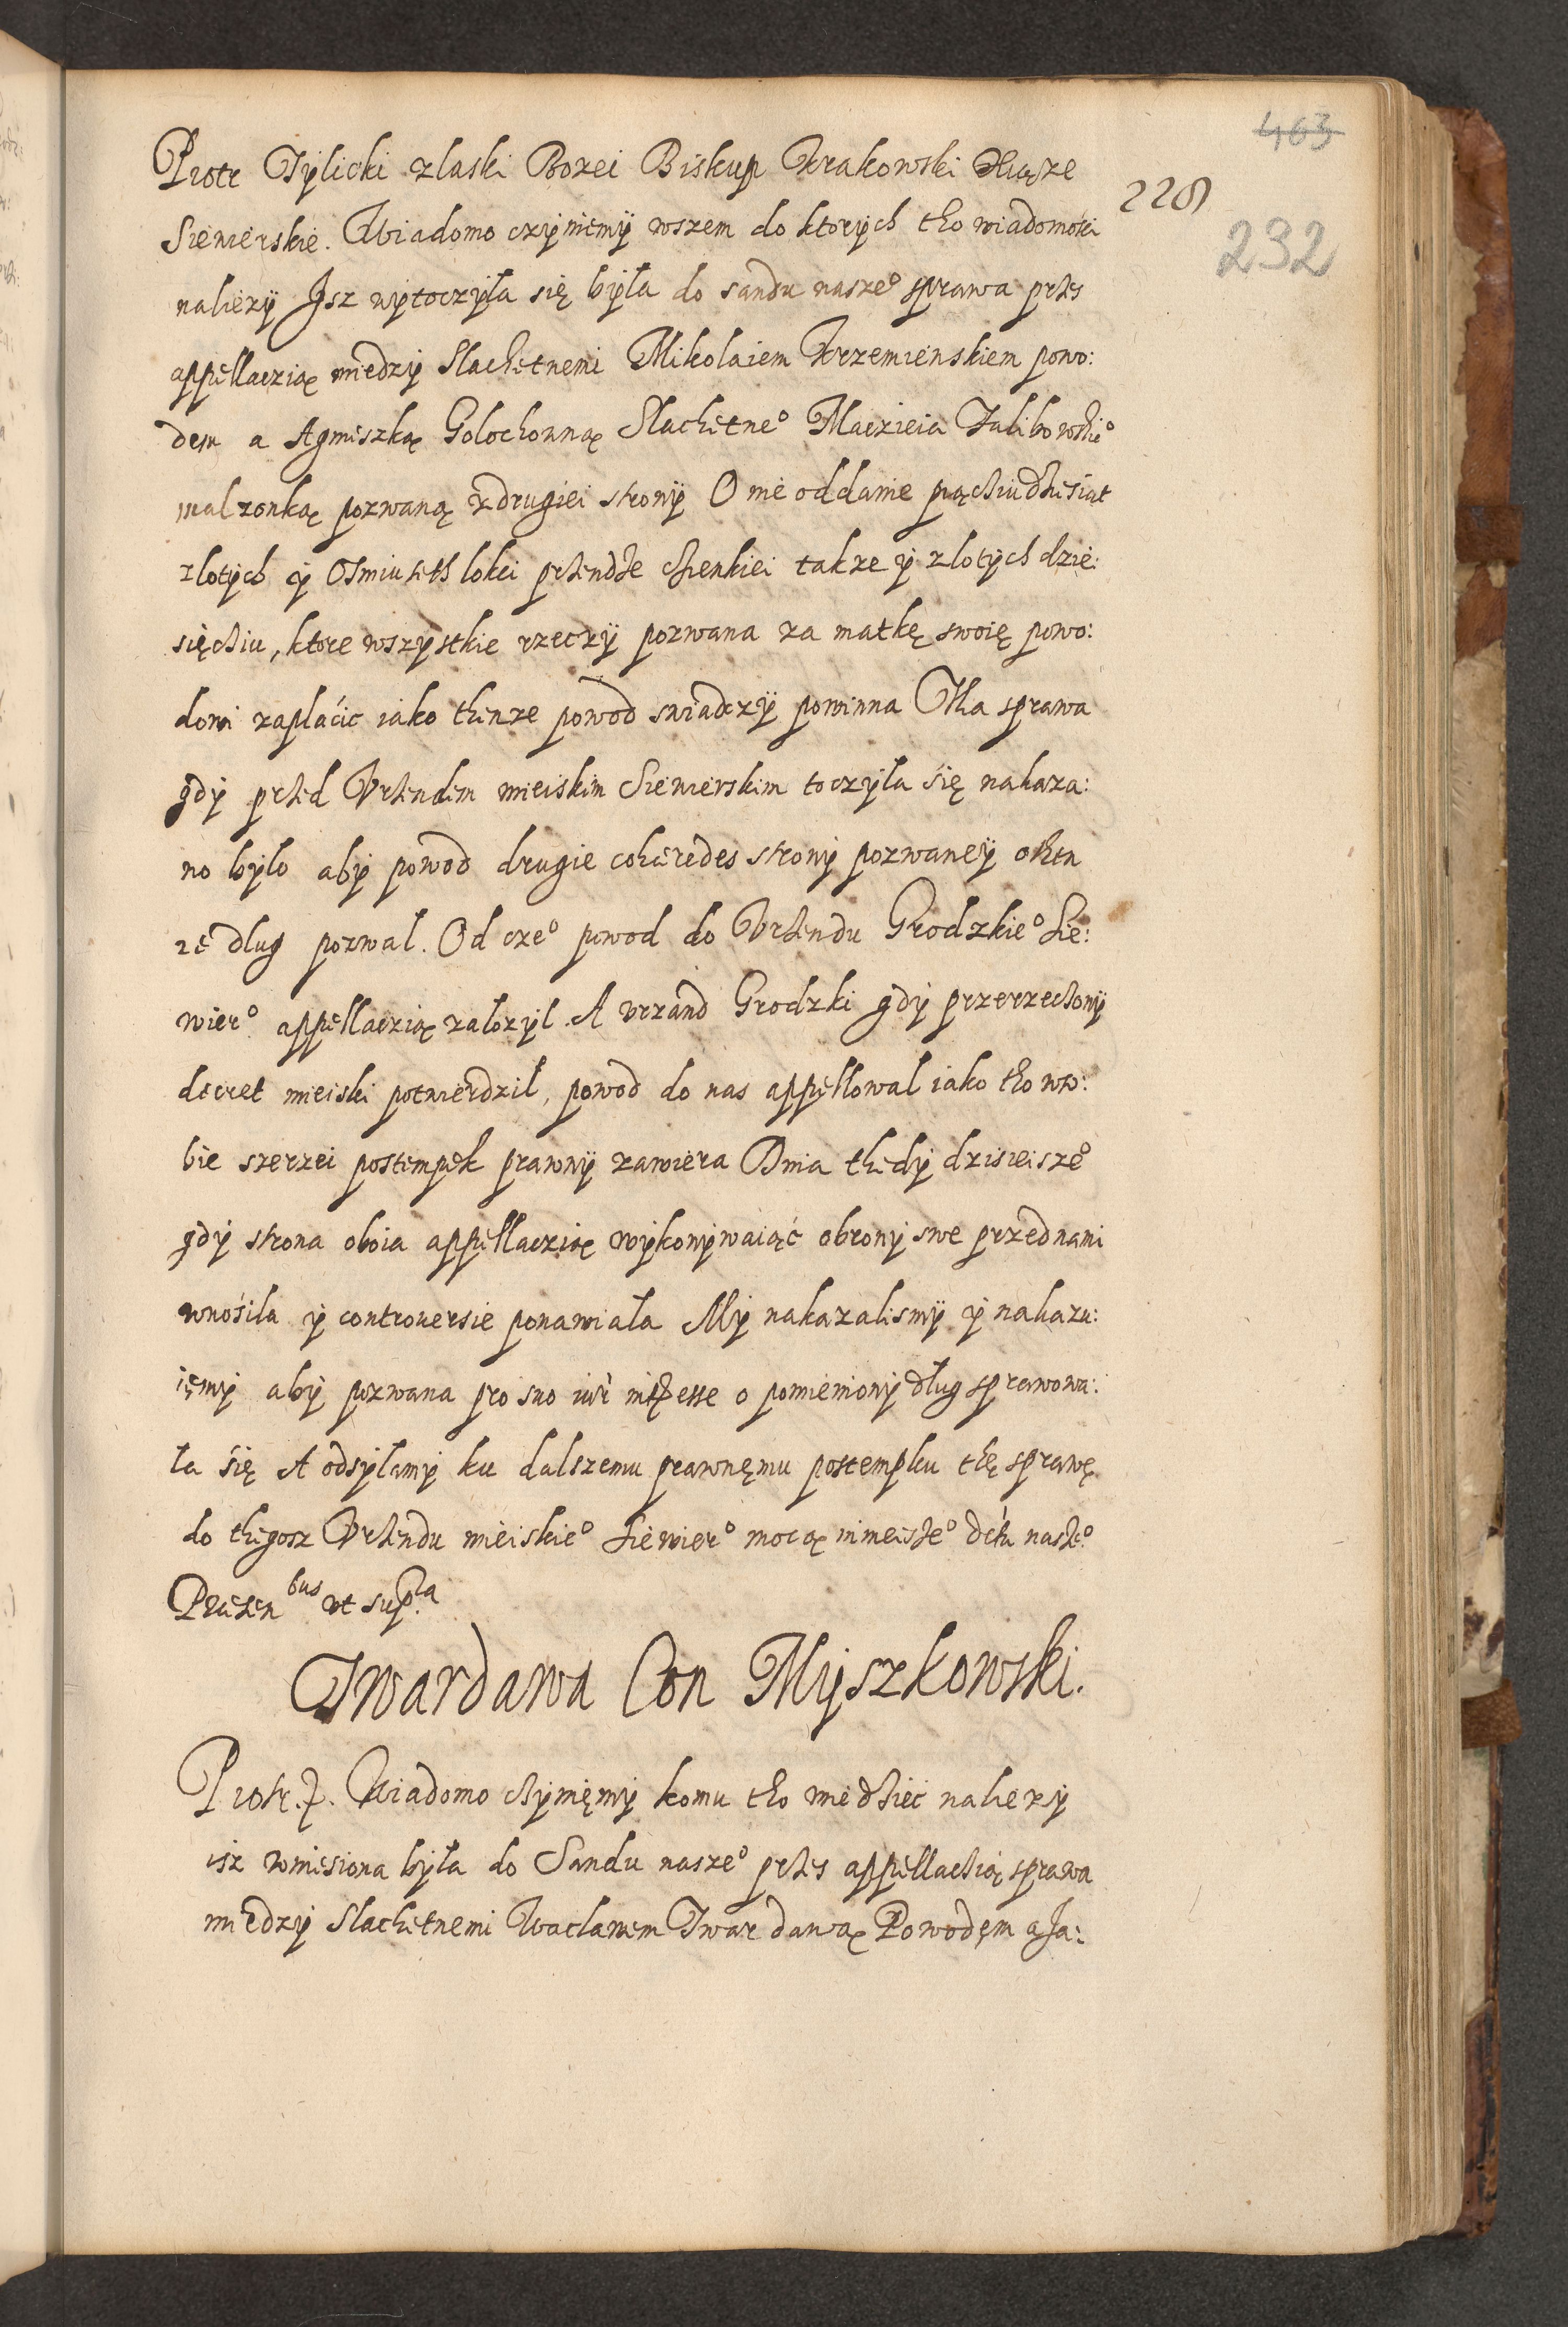 463
228
232
Piotr Tÿlicki zlaski Bozei Biskup Krakowski Xiąze
Siewierskie. Wiadomo czÿniemÿ wszem do ktorÿch tho wiadomośći
nalieżÿ Isz wÿtoczÿła się bÿła do sandu nasze° sprawa przes
appellaczią miedzÿ Slachetnemi Mikolaiem Krzemienskiem powo:
dem a Agniszką Golochowną Slachetne° Maczieia Kulikowskie°
malzonką pozwaną zdrugiei stronÿ O nie oddanie piąchiudziesiat
zlotÿch ÿ Osmiuseth lokci przendze chienkiei takze ÿ zlotÿch dzie:
sięchiu, ktore wszÿstkie rzeczÿ pozwana za matkę swoię powo:
dowi zaplaćic iako thenze powod swiadczÿ powinna Tha sprawa
gdÿ przed Vrzendem mieiskim Siewierskim toczÿla się nakaza:
no bÿlo abÿ powod drugie cohæredes stronÿ pozwaneÿ othen
ze dlug pozwal. Od cze° powod do Vrzendu Grodzkie° Sie:
wier° appellaczią zalozÿl. A vrzand Grodzki gdÿ przerzechonÿ
decret mieiski potwierdzil, powod do nas appellowal iako tho wso:
bie szerzei postempek prawnÿ zawiera Dnia thedÿ dzisieisze°
gdÿ strona oboia appellaczią wÿkonÿwaiąć obronÿ swe przednami
wnośila ÿ controuersie ponawiała Mÿ nakazalismÿ ÿ nakazu:
ięmÿ abÿ pozwana pro suo iuri interesse o pomienionÿ dług sprawowa:
ła się A odsÿlamÿ ku dalszemu prawnęmu postempku thę sprawę
do thegosz Vrzendu mieiskie° Siewier° mocą ninieisze° dctu nasze°
Præsen bus vt supra
Twardawa Con Mÿszkowski.
Piotr. Wiadomo chÿnięmÿ komu tho wiedzieć naliezÿ
isz wniesiona bÿła do Sandu nasze° przes appellachią sprawa
miedzÿ Slachetnemi Waclawem Twardawą Powodęm a Ja: